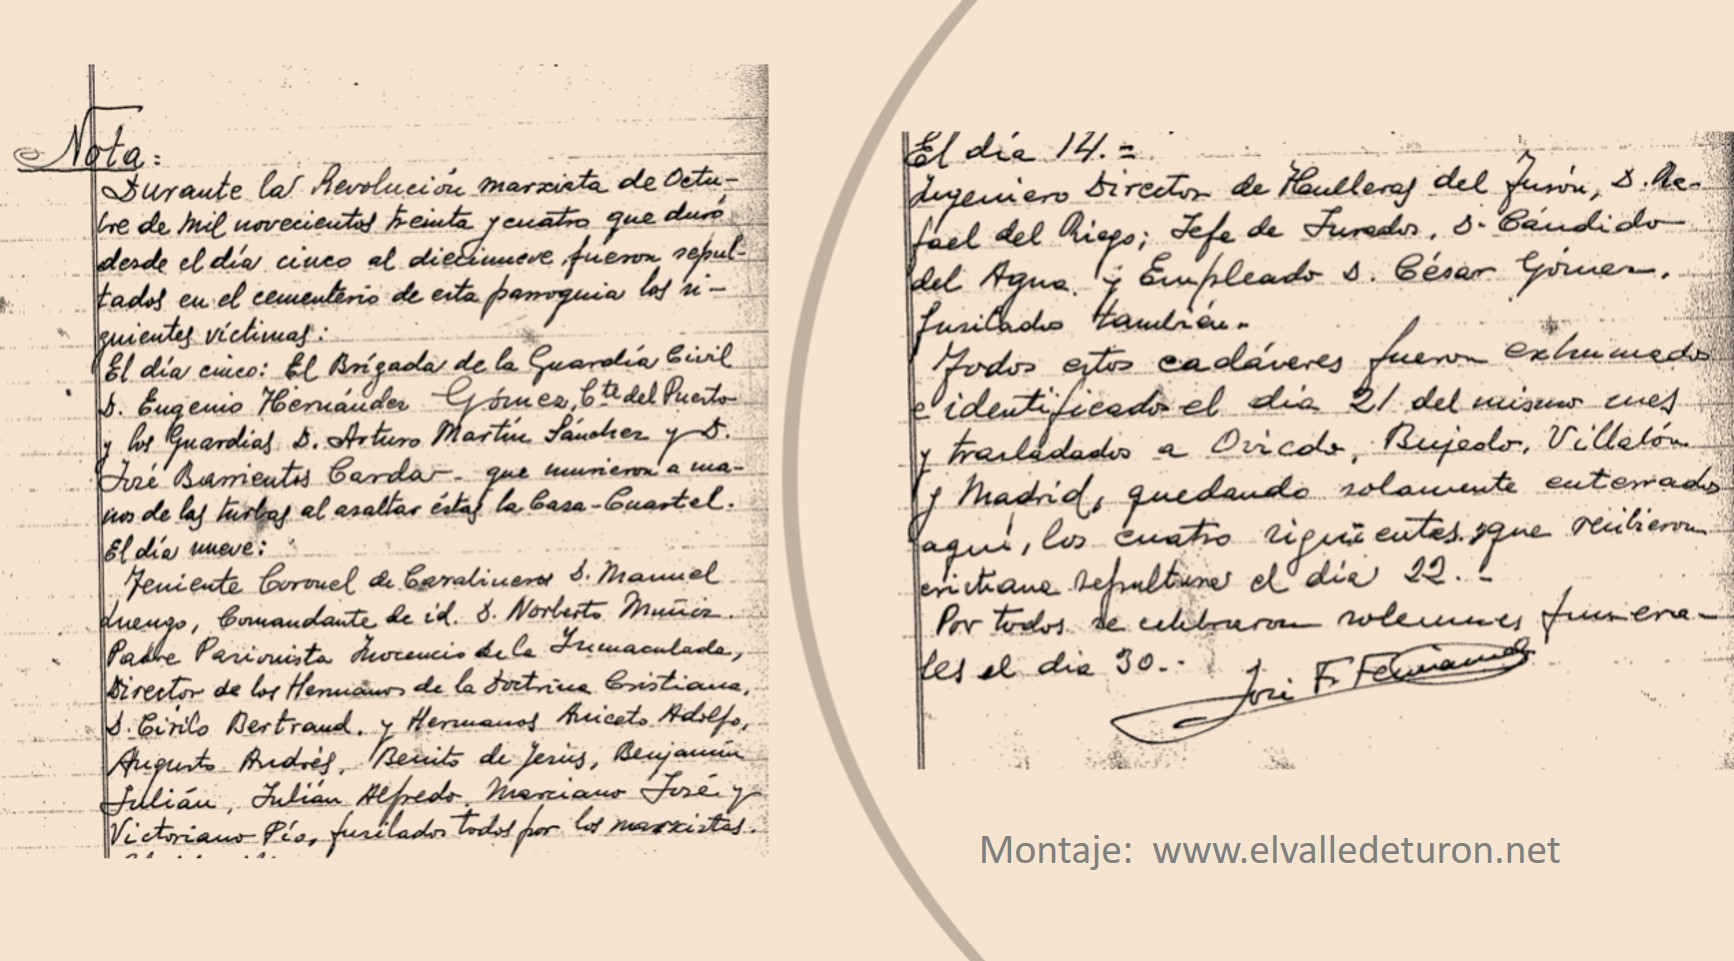 Nota:
Durante la Revolución marxista de Octu-
bre de mil novecientos treinta y cuatro que duró
desde el día cinco al diecinueve, fueron sepul-
tados en el cementerio de esta parroquia los si-
guientes víctimas:
El día cinco: El Brígada de la Guardia Civil
D. Eugenio Hernández Gómez, Cte del Puesto
y los Guardias D. Arturo Martín Sánchez y D.
José Barrientos Cardar- que murieron a ma-
nos de las turbas al asaltar éstas la Casa-Cuartel.
El día nueve:
Teniente Coronel de Carabineros D. Manuel
Luengo, Comandante de id. D. Norberto Muñiz.
Padre Pasionista Inocencio de la Inmaculada,
Director de los Hermanos de la Doctrina Cristiana,
D. Cirilo Bertrand. y Hermanos Aniceto Adolfo,
Augusto Andrés, Benito de Jesús, Benjamín
Julián, Julián Alfredo, Marciano José y
Victoriano Pío, fusilados todos por los marxistas.
El día 14.=
Ingeniero Director de Hulleras del Turón, D. Ra-
fael del Riego; Jefe de Jurados, D. Cándido
del Agua. y Empleado D. César Gómez.
fusilados también.-
Todos estos cadáveres fueron exhumados
e identificados el día 21 del mismo mes
y trasladados a Oviedo, Bujedo, Villalón
y Madrid, quedando solamente enterrados
aquí, los cuatro siguientes, que recibieron
cristiana sepultura el día 22.-
Por todos se celebraron solemnes funera-
les el día 30.-
José F. Fernández
Montaje: www.elvalledeturon.net